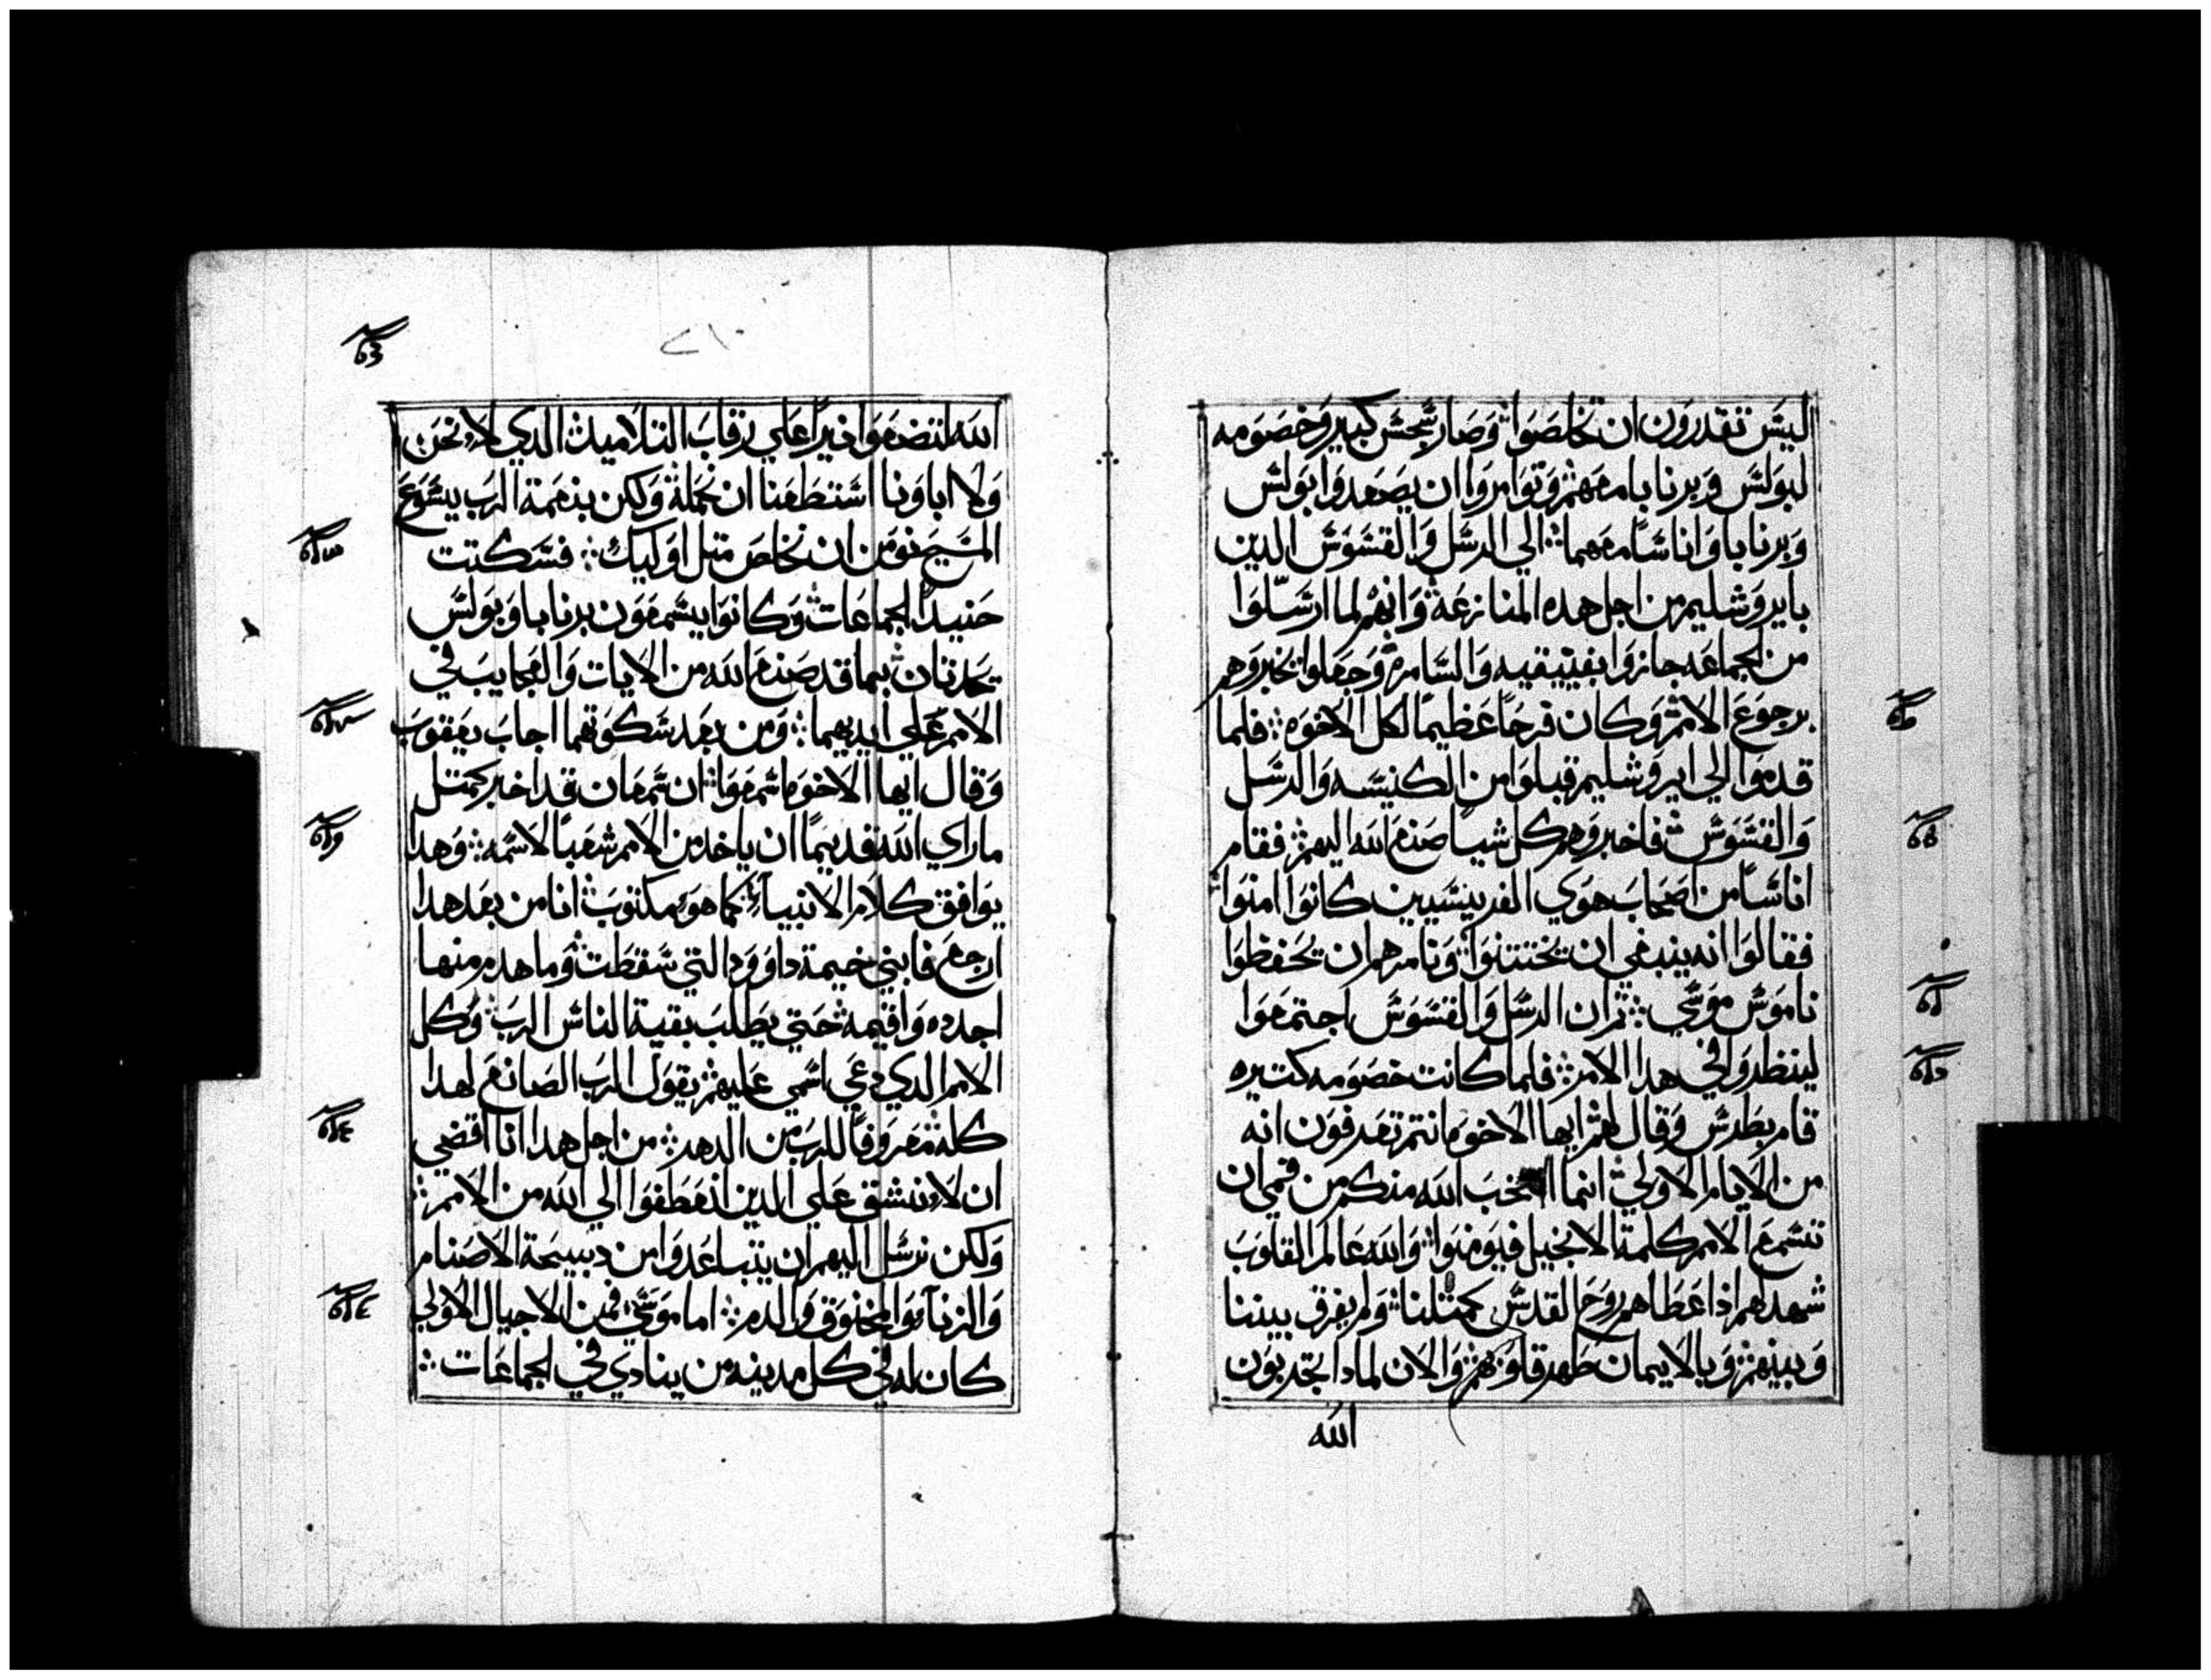 ليس تقدرون ان تخلصوا وصار سجس كبير وخصومه
لبولس وبرنابا معهم وتوامروا ان يصعدوا بولس
وبرنابا واناسا معهما الي الرسل والقسوس الدين
بايروشليم من اجل هده المنازعة وانهم لما ارسلوا
من الجماعه جازوا بفينيقيه والسامرة وجعلوا تخبروهم
برجوع الامم وكان فرحا عظيما لكل الاخوه فلما
قدموا الي ايروشليم قبلوا من الكنيسه والرسل
والقسوس فاخبروهم كل شيا صنع الله اليهم فقام
اناسا من اصحاب هوي الفريسيين كانوا امنوا
فقالوا انه ينبغي ان يختتنوا ونامرهم ان يحفظوا
ناموس موسي ثم ان الرسل والقسوس اجتمعوا
لينظروا في هدا الامر فلما كانت خصومه كتيره
قام بطرس وقال لهم ايها الاخوه انتم تعرفون انه
من الايام الاولي انما انتخب الله منكم من فمي ان
تسمع الامم كلمة الانجيل فيومنوا والله عالم القلوب
شهد لهم اذ اعطاهم روح القدس كمثلنا ولم يفرق بيننا
وبينهم وبالايمان طهر قلوبهم والان لمادا تجربون
الله
الله لتضعوا نيرا علي رقاب التلاميد الدي لا نحن
ولا اباونا استطعنا ان نحمله ولكن بنعمة الرب يسوع
المسيح نومن ان نخلص مثل اوليك فسكتت
حنيدا الجماعات وكانوا يسمعون برنابا وبولس
يحدثان بما قد صنع الله من الايات والعجايب في
الامم علي ايديهما ومن بعد سكوتهما اجاب يعقوب
وقال ايها الاخوه اسمعوا ان سمعان قد اخبر كمثل
ما راي الله قديما ان ياخد من الامم شعبا لاسمه وهدا
يوافق كلام الانبياء كما هو مكتوب انا من بعد هدا
ارجع فابني خيمة داوود التي سقطت وما هدم منها
اجدده واقيمه حتي يطلب بقية الناس الرب وكل
الامم الدي دعي اسمي عليهم يقول الرب الصانع لهدا
كله معروفا للرب من الدهر من اجل هدا انا اقضي
ان لا نشق علي الدين انعطفوا الي الله من الامم
ولكن نرسل اليهم ان يتباعدوا من دبيحة الاصنام
والزناء والمخنوق والدم اما موسي فمن الاجيال الاولي
كان له في كل مدينه من ينادي في الجماعات